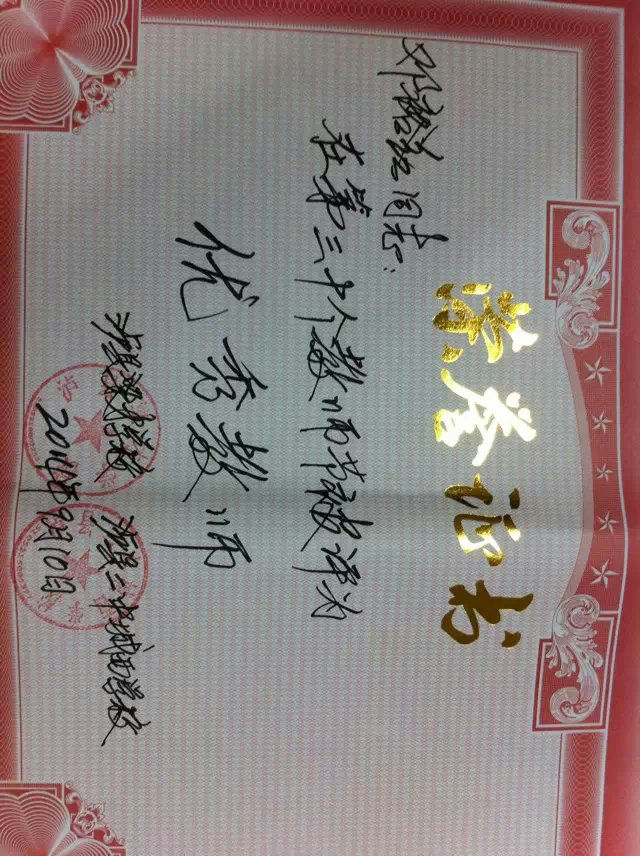 荣誉证书
同志:
在第三十个教师节被评为
优秀教师
学校 二中城西学校
2014年9月10日